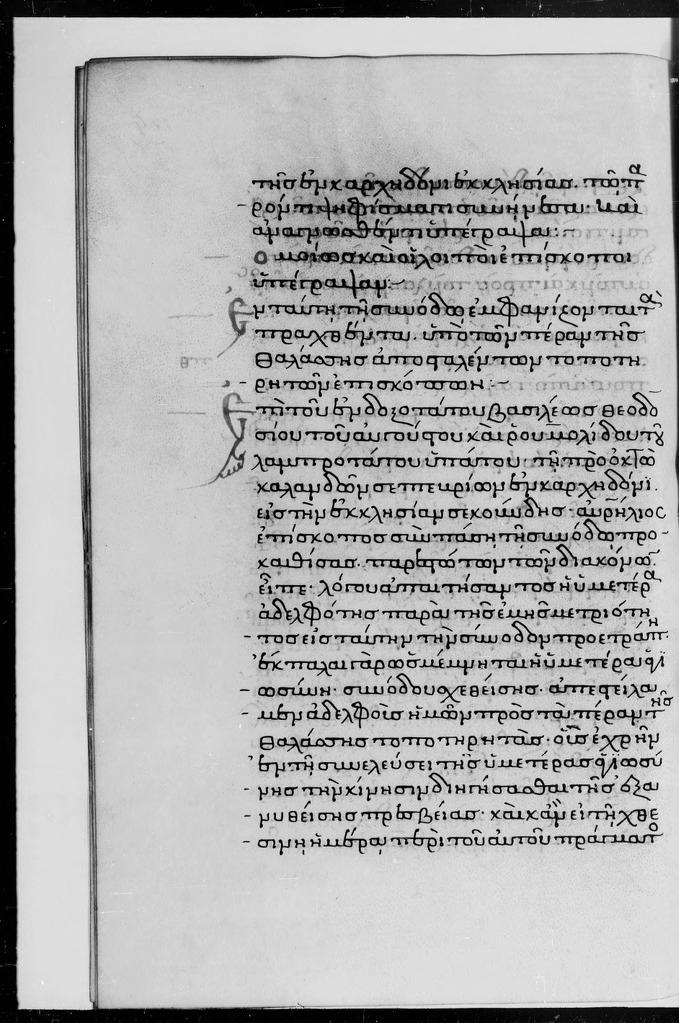 τῆς ἐν καρχηδόνι ἐκκλησίας. τῶ πα
ρόντι ψηφίσματι συνήνεσα· καὶ
ἀναγνωσθέντι ὑπέγραψα:
Ὁμοίως καὶ οἱ λοιποὶ ἐπίσκοποι
ὑπέγραψαν:
Ἐν ταύτῃ τῇ συνόδω ἐμφανίζονται τὰ
πραχθέντα. ὑπὸ τῶν πέραν τῆς
θαλάσσης ἀποσταλέντων τοποτη
ρητῶν ἐπισκόπων:
Ἐπὶ τοῦ ἐνδοξοτάτου βασιλέως θεοδο
σίου τοῦ αὐγούστου καὶ ῥουμολίδου τοῦ
λαμπροτάτου ὑπάτου· τῇ πρὸ ὀκτὼ
καλανδῶν σεπτευρίων ἐν καρχηδόνι.
εἰς τὴν ἐκκλησίαν σεκούνδης· αὐρήλιος
ἐπίσκοπος σὺν πάσῃ τῇ συνόδω προ
καθίσας. παρεστώτων τῶν διακόνων.
εἶπε· λόγου ἀπαιτήσαντος ἡ ὑμετέρα
ἀδελφότης παρὰ τῆς ἐμῆς μετριότη
τος εἰς ταύτην τὴν σύνοδον προετράπη.
ἐκ παλαι γὰρ ὡς μέμνηται ἡ ὑμετέρα ἁγι
ωσύνη· συνόδου σχεθείσης· ἀπεστείλα
μεν ἀδελφοῖς ἡμῶν πρὸς τὰ πέραν τῆς
θαλάσσης τοποτηρητὰς· οἷς ἐχρῆν
ἐν τῇ συνελεύσει τῆς ὑμετέρας ἁγιωσύ
νης τὴν κίνησιν διηγήσασθαι τῆς ἐξα
νυθείσης πρεσβείας· καὶ κἂν εἰ τῇ χθε
σινῇ ἡμέρᾳ περὶ τοῦ αὐτοῦ πράγματο